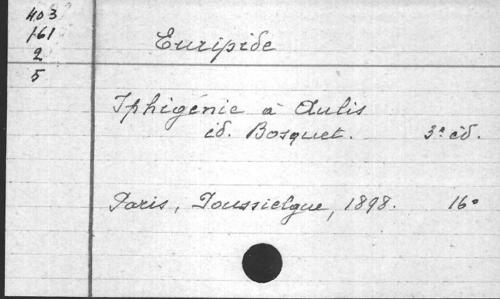 403
161
2
5
Euripide
Iphigénie à Aulis
éd. Bosquet. 3e éd.
Paris, Poussielgue, 1898. 16°